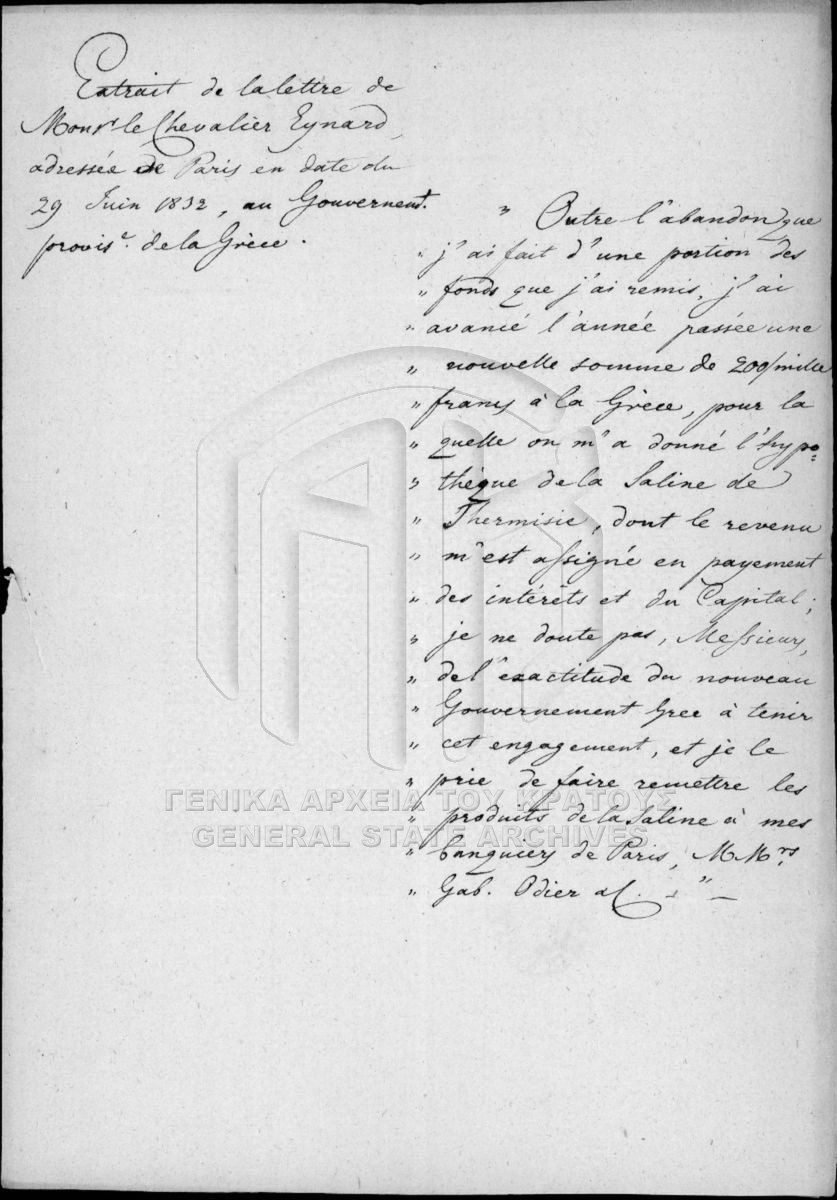 Extrait de la lettre de
Monsr le Chevalier Eynard,
adressée de Paris en date du
29 Juin 1832, au Gouvernemt.
provisre. de la Grèce.
" Outre l'abandon que
" j'ai fait d'une portion des
" fonds que j'ai remis, j'ai
" avancé l'année passée une
" nouvelle somme de 200/mille
" francs à la Grèce, pour la
" quelle on m'a donné l'hypo=
" thèque de la Saline de
" Thermisie, dont le revenu
" m'est assigné en payement
" des intérêts et du Capital;
" je ne doute pas, Messieurs,
" de l'exactitude du nouveau
" Gouvernement Grec à tenir
" cet engagement, et je le
" prie de faire remettre les
" produits de la Saline à mes
" banquiers de Paris, MMrs
" Gab. Odier & C. "
ΓΕΝΙΚΑ ΑΡΧΕΙΑ ΤΟΥ ΚΡΑΤΟΥΣ
GENERAL STATE ARCHIVES